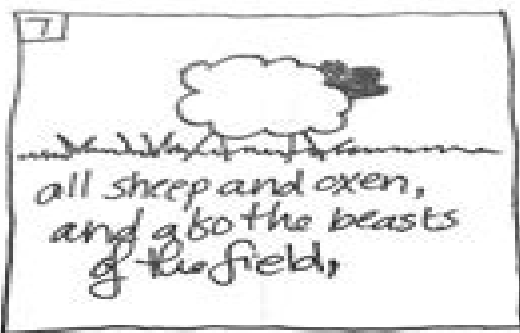 7
all sheep and oxen,
and also the beasts
of the field,